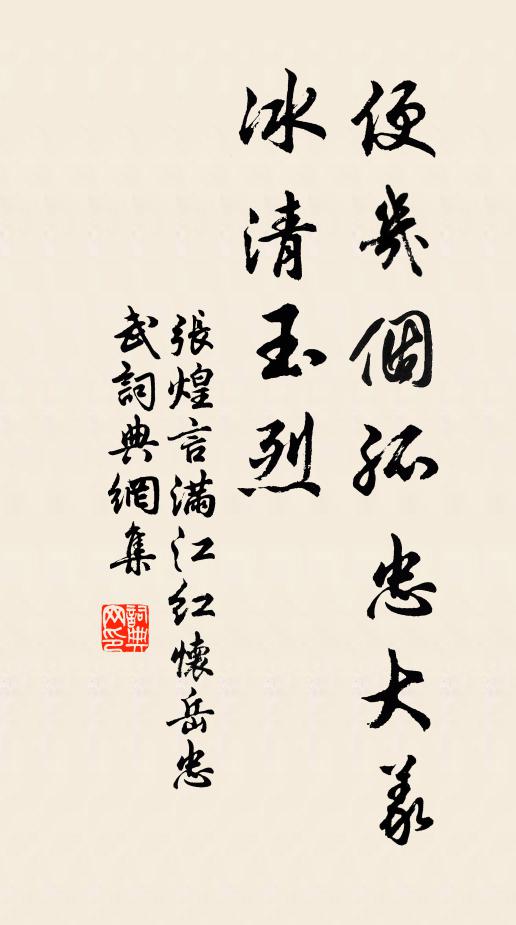 便幾個孤忠大義
冰清玉烈
張煌言滿江紅懷岳忠
武詞典網集
詞典
网印